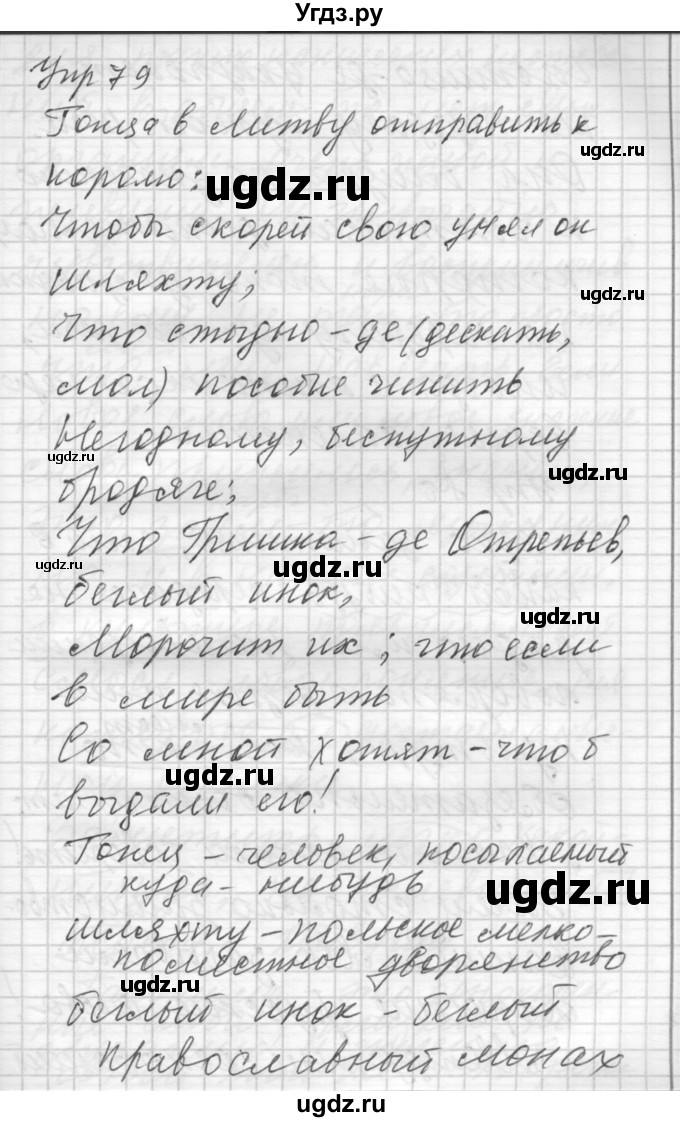 Угдз.ру
Упр 79
Гонца в Литву отправить к
ugdz.ru
королю:
ugdz.ru
Чтобы скорей свою унял он
шляхту;
ugdz.ru
Что стыдно-де (дескать,
мол) пособие чинить
Негодному, беспутному
ugdz.ru
ugdz.ru
бродяге;
Что Гришка-де Отрепьев,
ugdz.ru
ugdz.ru
беглый инок,
ugdz.ru
Морочит их; что если
в мире быть
Со мной хотят - что б
ugdz.ru
выдали его!
Гонец - человек, посылаемый
куда-нибудь
ugdz.ru
шляхту - польское мелко-
поместное дворянство
ugdz.ru
беглый инок - беглый
православный монах
ugdz.ru